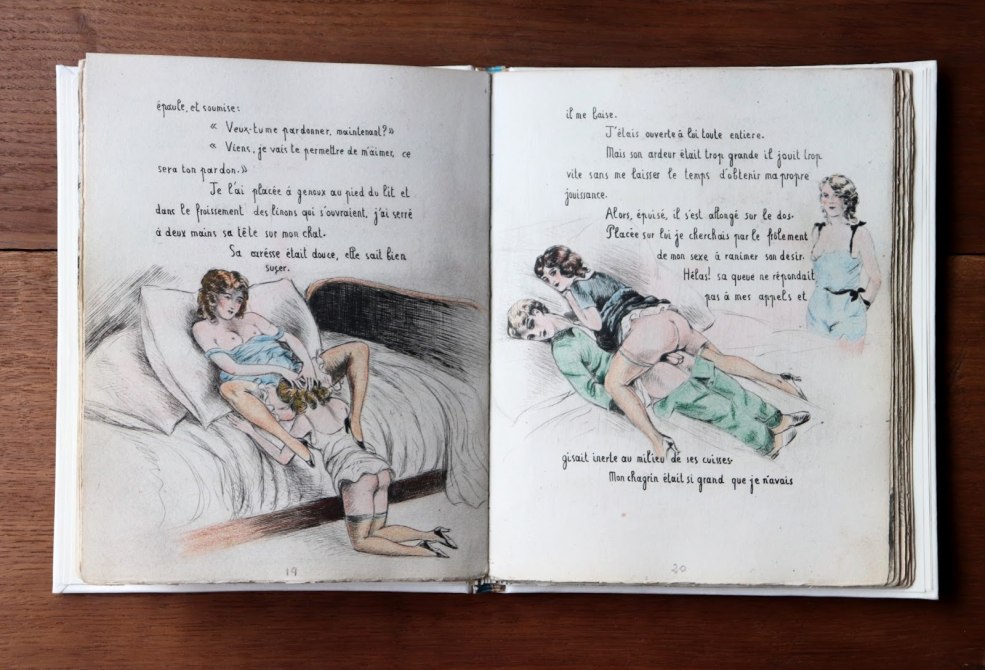 épaule, et soumise:
« Veux-tu me pardonner, maintenant? »
« Viens, je vais te permettre de m'aimer, ce
sera ton pardon. »
Je l'ai placée à genoux au pied du lit et
dans le froissement des linons qui s'ouvraient, j'ai serré
à deux mains sa tête sur mon chat.
Sa carésse était douce, elle sait bien
suçer.
19
il me baise.
J'étais ouverte à lui toute entiere.
Mais son ardeur était trop grande il jouit trop
vite sans me laisser le temps d'obtenir ma propre
jouissance.
Alors, épuisé, il s'est allongé sur le dos.
Placée sur lui je cherchais par le frôlement
de mon sexe à ranimer son desir.
Hélas! sa queue ne répondait
pas à mes appels et
gisait inerte au milieu de ses cuisses.
Mon chagrin était si grand que je n'avais
20